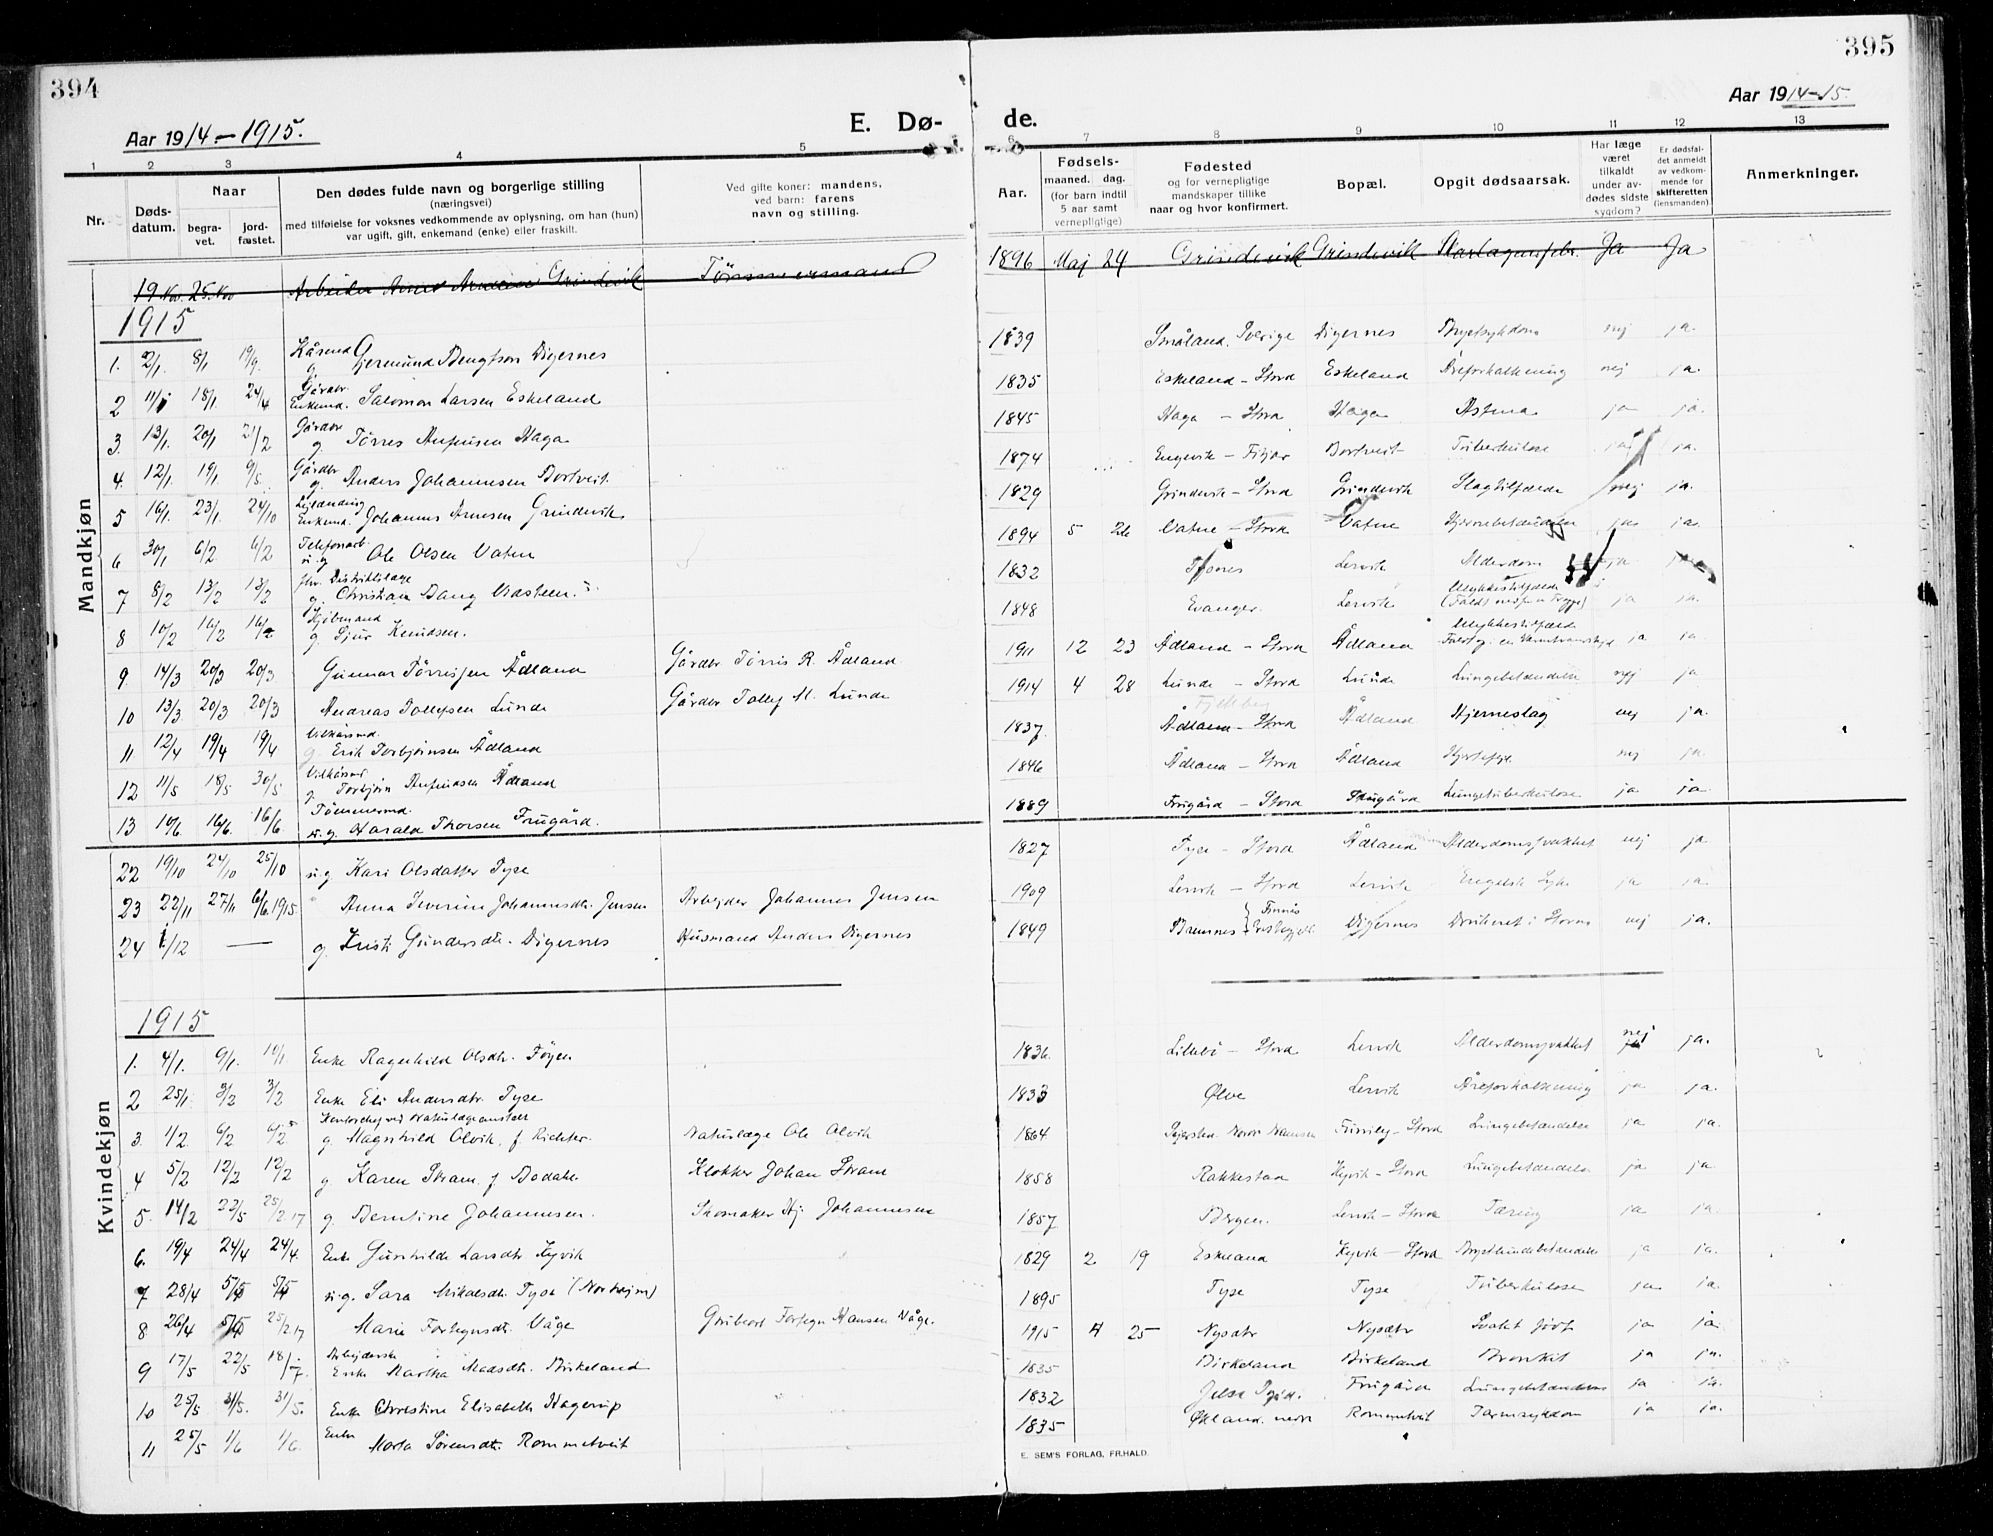 394
395
Aar 1914-1915.
E. Dø-
de.
Aar 1914-15.
1 2 3 4 5 6 7 8 9 10 11 12 13
Nr.
Dødsdatum.
Naar
begravet.
jordfæstet.
Den dødes fulde navn og borgerlige stilling
(næringsvei)
med tilføielse for voksnes vedkommende av oplysning, om han (hun)
var ugift, gift, enkemand (enke) eller fraskilt.
Ved gifte koner: mandens,
ved barn: farens
navn og stilling.
Aar.
Fødsels-
maaned. dag.
(for barn indtil
5 aar samt
vernepligtige)
Fødested
og for vernepligtige
mandskaper tillike
naar og hvor konfirmert.
Bopæl.
Opgit dødsaarsak.
Har læge
været
tilkaldt
under avdødes sidste
sygdom?
Er dødsfaldet anmeldt
av vedkommende for
skifteretten
(lensmanden)
Anmerkninger.
Mandkjøn
19 Nov. 25. Nov Arbeider Grindevik Tömmermand 1896 Maj 24 Grindevik Grindevik Skarlagensfeber. Ja Ja
1915
1. 2/1. 8/1 19/9. Kårmd g. Gjermund Bengtson Digernes 1839 Småland, Sverige Digernes Brystsykdom nej ja.
2 11/1 18/1. 24/4 Gårdbr. Enkemd. Salomon Larsen Eskeland 1835 Eskeland - Stord Eskeland Åreforkalkning nej ja.
3. 13/1. 20/1 21/2 Gårdbr g. Törres Anfinsen Haga 1845 Haga - Stord Haga Astma ja ja.
4. 12/1. 19/1 9/5. Gårdbr g. Anders Johannesen Bortveit. 1874 Engevik - Fitjar Bortveit Tuberkulose ja ja.
5 16/1. 23/1. 24/10 Enkemd. Johannes Arnesen Grindevik 1829 Grindevik - Stord Grindevik Slagtilfælde nej ja.
6 30/1 6/2 6/2 Telefonarb. u.g Ole Olsen Vatne 1894 5 26 Vatne - Stord Vatne Hjernebetændelse ja ja.
7 8/2 13/2 13/2 fhv. Distriktslæge g. Christian Bang 1832 Lervik Alderdom ja
8 10/2 16/2 16/2 g. Sjur Knudsen. 1848 Evanger. Lervik Ulykkestilfælde ja ja.
9. 14/3 20/3 20/3 Gunnar Törrisjen Ådland Gårdbr Törris R. Ådland. 1911 12 23 Ådland - Stord Ådland Ulykkestilfælde ja ja.
10 13/3 20/3 20/3 Andreas Tollefsen Lunde Gårdbr Tollef M. Lunde 1914 4 28 Lunde - Stord Lunde Lungebetændelse nej ja
11 12/4 19/4 19/4 Vilkårsmd. g. Erik Torbjörnsen Ådland 1837. Fjellberg Ådland - Stord Ådland Hjerneslag nej ja.
12 11/5 18/5 30/5 Vilkårsmd g. Torbjörn Anfindsen Ådland 1846 Ådland - Stord Ådland Hjertefejl nej ja.
13 10/6. 16/6. 16/6. Tömmermd. u.g. Harald Thorsen Frugård. 1889 Frugård - Stord Frugård Lungetuberkulose ja ja.
22 19/10 24/10 25/10 u.g. Kari Olsdatter Tyse 1827 Tyse - Stord Ådland Alderdomssvakhet nej ja
23 22/11 27/11 6/6.1915 Anna Severine Johannesdtr. Jensen Arbejder Johannes Jensen 1909 Lervik - Stord Lervik Engelsk Syke ja ja.
24 1/12 — g. Kristi Gundersdtr. Digernes Husmand Anders Digernes 1849 Bremnes Digernes Druknet i nej ja.
Kvindekjøn
1915
1. 4/1. 9/1. 10/1 Enke Ragnhild Olsdtr. Föyen 1836. Lillebö - Stord Lervik Alderdomssvakhet nej ja.
2 25/1. 3/2 3/2 Enke Eli Andersdtr Tyse 1833 Ølve Lervik Åreforkalkning ja ja.
3. 1/2 6/2 6/2 g. Magnhild Olvik, f. Richter. Naturlæge Ole Olvik 1864 - Stord Lungebetændelse ja ja.
4 5/2 12/2 12/2 g. Karen Skram f. Dodahl Klokker Johan Skram 1858 Rakkestad Hyvik - Stord Lungebetændelse ja ja.
5. 14/2 22/5 25/2 17 g. Berntine Johannesen. Skomaker Hj. Johannesen 1857 Bergen. Lervik - Stord Tæring ja ja.
6. 19/4 24/4 24/4. Enke Gunhilde Larsdtr Hyvik 1829 2 19 Eskeland Hyvik - Stord ja ja.
7 28/4 5/5 5/5 u.g. Sara Mikalsdtr. Tyse (Norheim) 1895 Tyse Tyse Tuberkulose ja ja.
8. 26/4 5/5 25/2 17 Marie Fortegnsdtr. Våge Fortegn Hansen Våge. 1915 4 25 Nysæter Nysæter Svakt født ja ja.
9 17/5 22/5 18/7. Arbejderske Enke Martha Madsdtr. Birkeland 1835 Birkeland Birkeland Bronkit ja ja.
10 25/5 31/5. 31/5. Enke Christine Elisabeth Hagerup 1832 Jelsa Frugård Lungebetændelse ja ja.
11 25/5 1/6 1/6. Enke Marta Sörensdtr. Rommetveit 1835 Økland Rommetveit Tarmsykdom ja ja.
E. SEM'S FORLAG, FR.HALD.